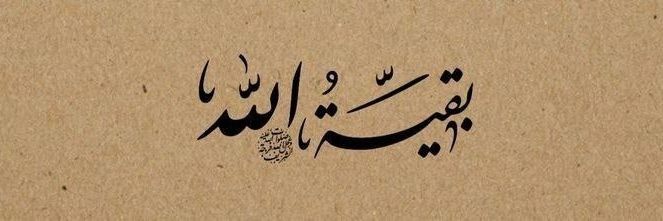 بقیّةُ اللّٰه